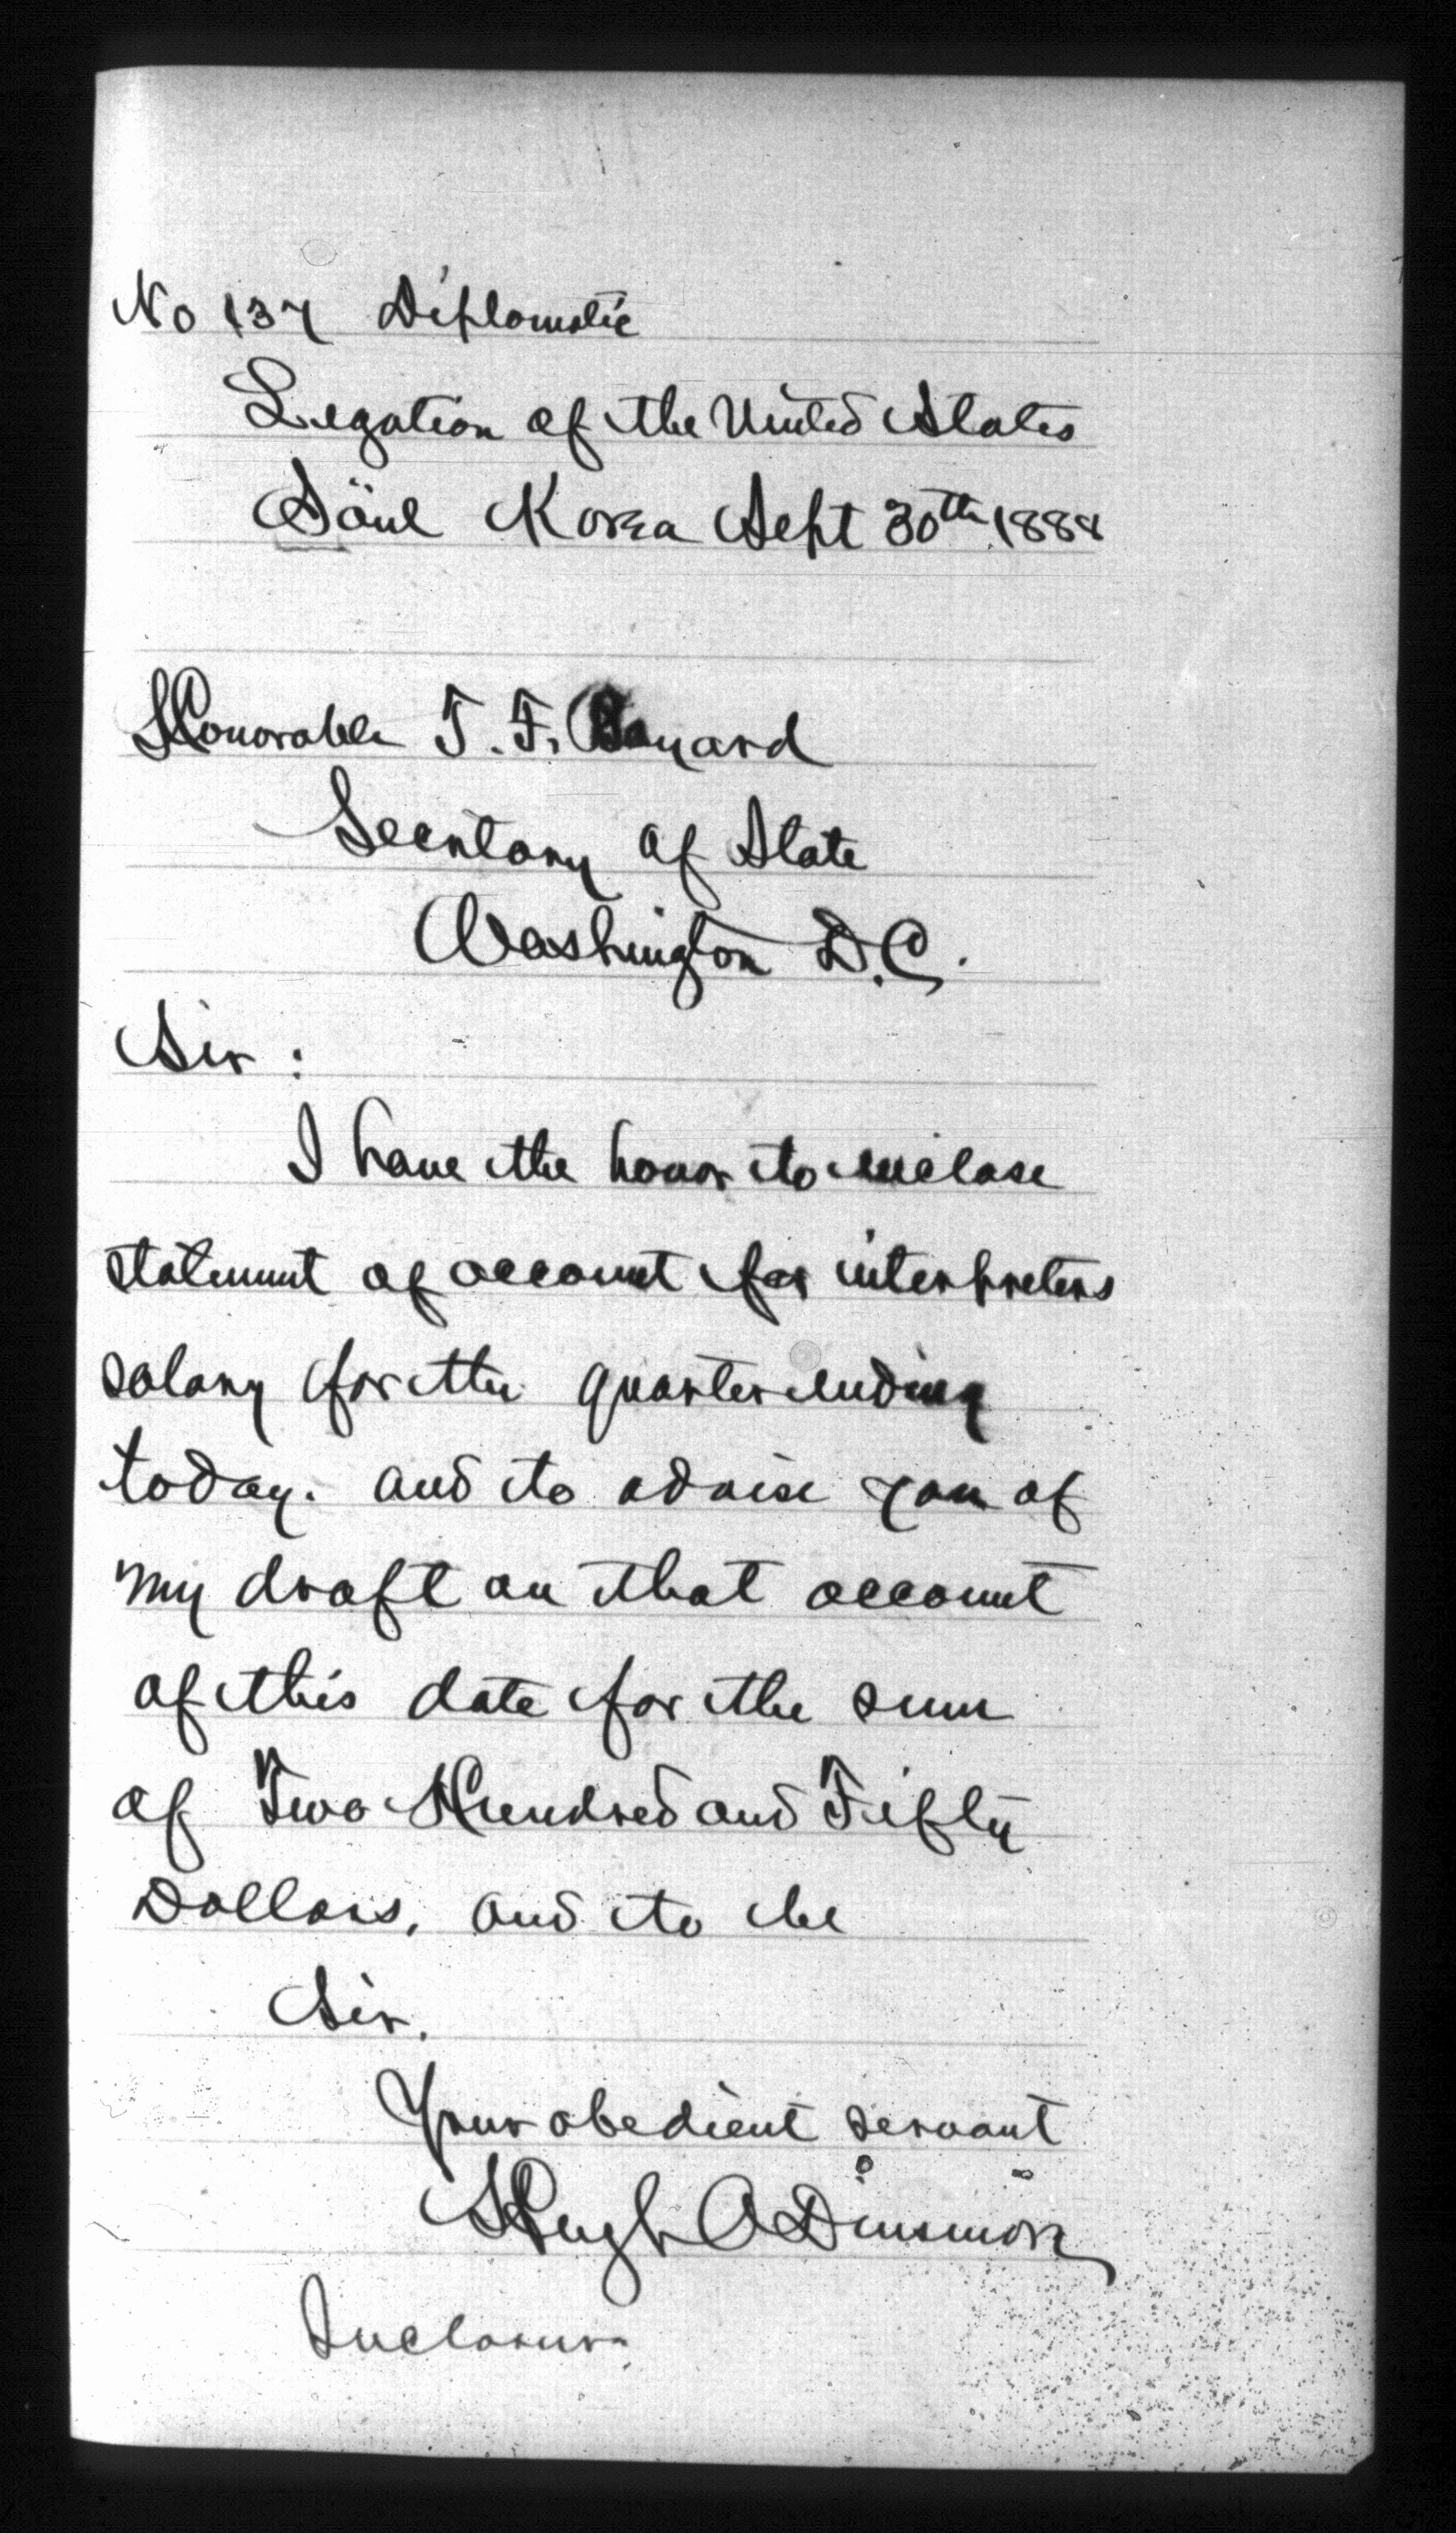 No 137 Diplomatic
Legation of the United States
Söul Korea Sept 30th 1888
Honorable T. F. Bayard
Secretary of State
Washington D.C.
Sir :
I have the honor to inclose
statement of account for interpreters
salary for the quarter ending
today. and to advise you of
my draft on that account
of this date for the sum
of Two Hundred and Fifty
Dollars, and to be
Sir,
Your obedient servant
Hugh A Dinsmore
Inclosure